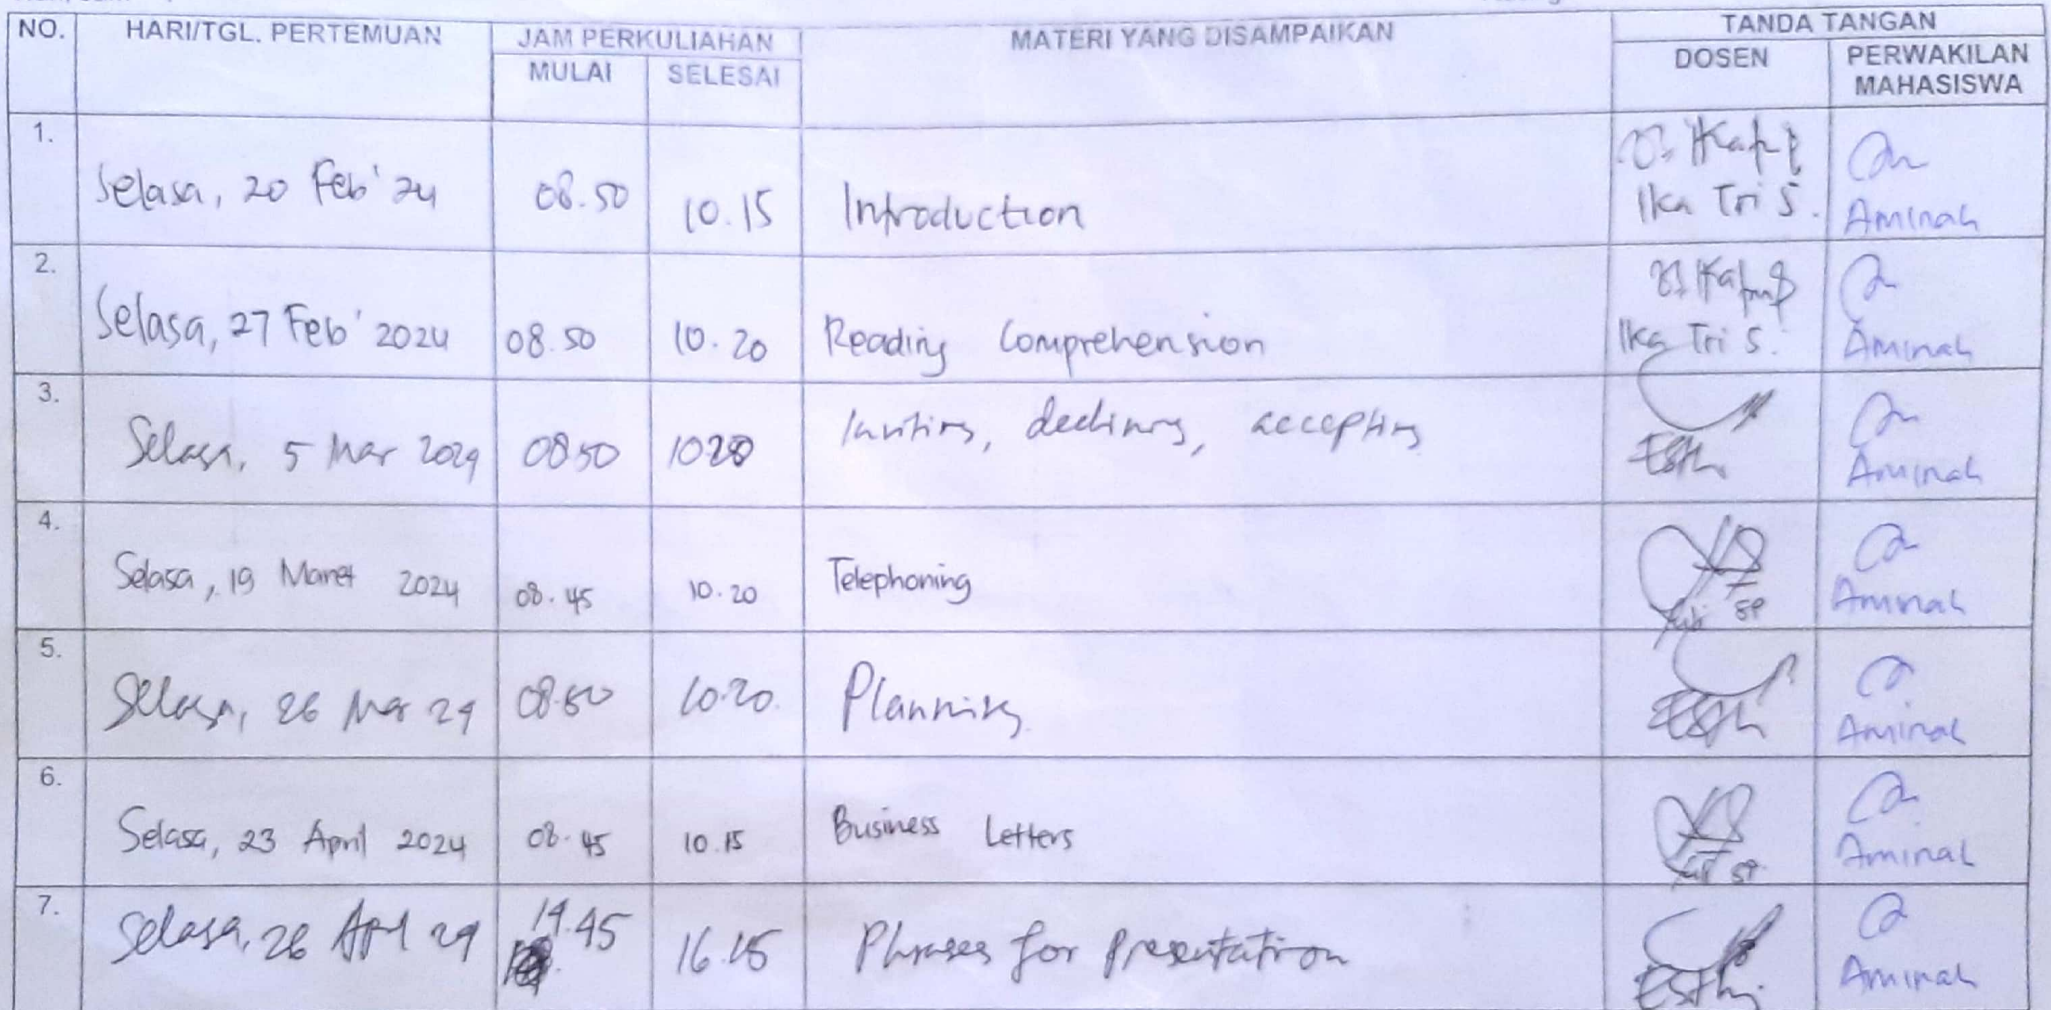 NO. HARI/TGL. PERTEMUAN JAM PERKULIAHAN MATERI YANG DISAMPAIKAN TANDA TANGAN
MULAI SELESAI DOSEN PERWAKILAN MAHASISWA
1. Selasa, 20 Feb' 24 08.50 10.15 Introduction Ika Tri S. Aminah
2. Selasa, 27 Feb' 2024 08.50 10.20 Reading Comprehension Ika Tri S. Aminah
3. Selasa, 5 Mar 2024 0850 1020 Inviting, declining, accepting Esthi Aminah
4. Selasa, 19 Maret 2024 08.45 10.20 Telephoning Aminah
5. Selasa, 26 Mar 24 08.50 10.20. Planning Esthi Aminah
6. Selasa, 23 April 2024 08.45 10.15 Business Letters Aminah
7. Selasa, 26 Apil 24 14.45 16.15 Phrases for presentation Esthi. Aminah